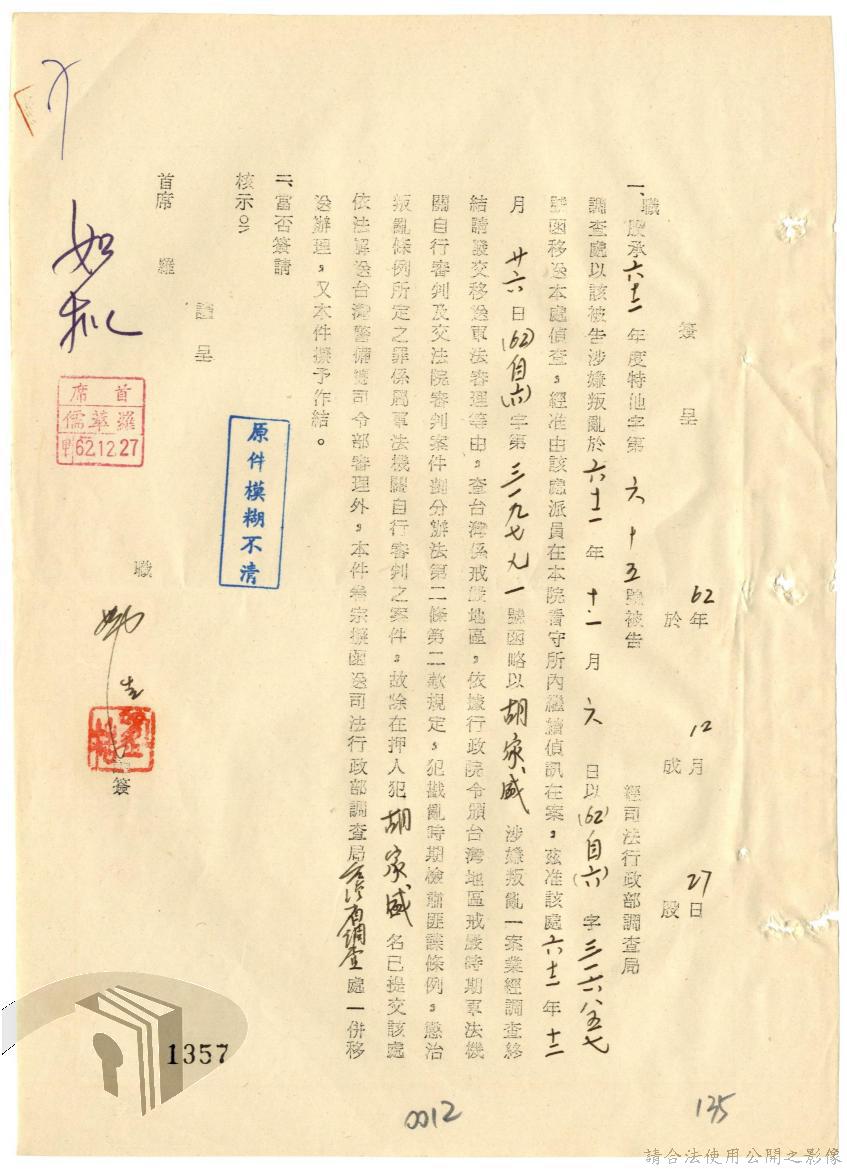 簽呈
62年12月27日
於成股
一、職股承六十二年度特他字第六十五號被告 經司法行政部調查局
調查處以該被告涉嫌叛亂於六十二年十二月六日以(62)自(六)字三一六八五七
號函移送本處偵查,經准由該處派員在本院看守所內繼續偵訊在案,茲准該處六十二年十二
月廿六日(62)自(六)字第三一九七九一號函略以胡家盛涉嫌叛亂一案業經調查終
結請發交移送軍法審理等由,查台灣係戒嚴地區,依據行政院令頒台灣地區戒嚴時期軍法機
關自行審判及交法院審判案件劃分辦法第二條第二款規定,犯戡亂時期檢肅匪諜條例,懲治
叛亂條例所定之罪係屬軍法機關自行審判之案件,故除在押人犯胡家盛名已提交該處
依法解送台灣警備總司令部審理外,本件卷宗擬函送司法行政部調查局台灣省調查處一併移
送辦理,又本件擬予作結。
二、當否簽請
核示。
謹呈
首席 羅
職
簽
如擬
首席
羅華儒
62.12.27
原件模糊不清
1357
0012
135
請合法使用公開之影像